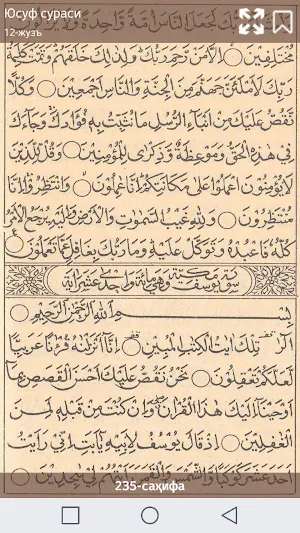 Юсуф сураси
12-жузъ
رَبُّكَ لَجَعَلَ النَّاسَ أُمَّةً وَاحِدَةً وَلَا يَزَالُونَ
مُخْتَلِفِينَ ○ إِلَّا مَنْ رَحِمَ رَبُّكَ وَلِذَلِكَ خَلَقَهُمْ وَتَمَّتْ كَلِمَةُ
رَبِّكَ لَأَمْلَأَنَّ جَهَنَّمَ مِنَ الْجِنَّةِ وَالنَّاسِ أَجْمَعِينَ ○ وَكُلًّا
نَقُصُّ عَلَيْكَ مِنْ أَنْبَاءِ الرُّسُلِ مَا نُثَبِّتُ بِهِ فُؤَادَكَ وَجَاءَكَ
فِي هَذِهِ الْحَقُّ وَمَوْعِظَةٌ وَذِكْرَى لِلْمُؤْمِنِينَ ○ وَقُلْ لِلَّذِينَ
لَا يُؤْمِنُونَ اعْمَلُوا عَلَى مَكَانَتِكُمْ إِنَّا عَامِلُونَ ○ وَانْتَظِرُوا إِنَّا
مُنْتَظِرُونَ ○ وَلِلَّهِ غَيْبُ السَّمَوَاتِ وَالْأَرْضِ وَإِلَيْهِ يُرْجَعُ الْأَمْرُ
كُلُّهُ فَاعْبُدْهُ وَتَوَكَّلْ عَلَيْهِ وَمَا رَبُّكَ بِغَافِلٍ عَمَّا تَعْمَلُونَ ○
سورة يوسف مكية وهي مائة واحدى عشر اية
بِسْمِ اللَّهِ الرَّحْمَنِ الرَّحِيمِ ○
الر تِلْكَ آيَاتُ الْكِتَابِ الْمُبِينِ ○ إِنَّا أَنْزَلْنَاهُ قُرْءَانًا عَرَبِيًّا
لَعَلَّكُمْ تَعْقِلُونَ ○ نَحْنُ نَقُصُّ عَلَيْكَ أَحْسَنَ الْقَصَصِ بِمَا
أَوْحَيْنَا إِلَيْكَ هَذَا الْقُرْآنَ وَإِنْ كُنْتَ مِنْ قَبْلِهِ لَمِنَ
الْغَافِلِينَ ○ إِذْ قَالَ يُوسُفُ لِأَبِيهِ يَا أَبَتِ إِنِّي رَأَيْتُ
أَحَدَ عَشَرَ كَوْكَبًا وَالشَّمْسَ وَالْقَمَرَ رَأَيْتُهُمْ لِي سَاجِدِينَ ○
235-саҳифа